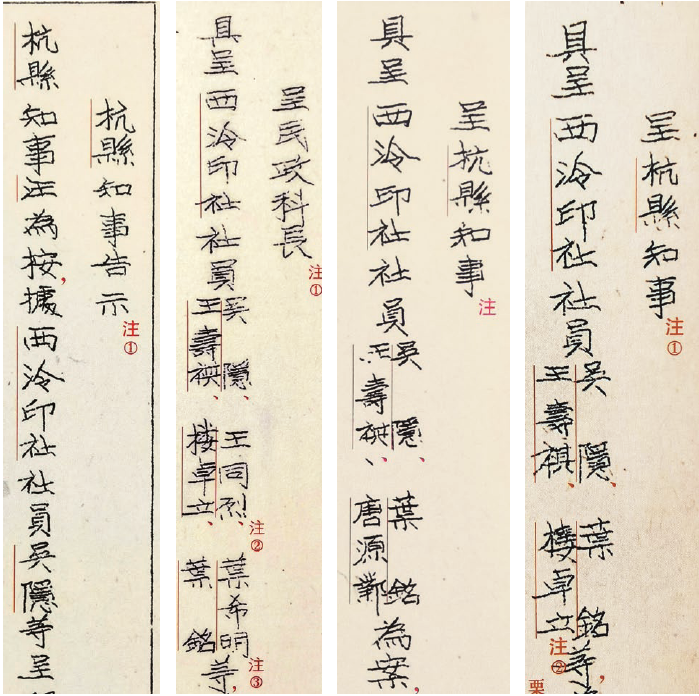 呈杭縣知事
注①
具呈西泠印社社員
吳隱、葉銘
王壽祺、樓卓立
等，
注②
栗
呈杭縣知事
注
具呈西泠印社社員
吳隱、葉銘
王壽祺、唐源鄴
為案，
呈民政科長
注①
具呈西泠印社社員
吳隱、王同烈、葉希明
王壽祺、樓卓立、葉銘
注②
等，
注③
杭縣知事告示
注①
杭縣知事汪為按，據西泠印社社員吳隱等呈